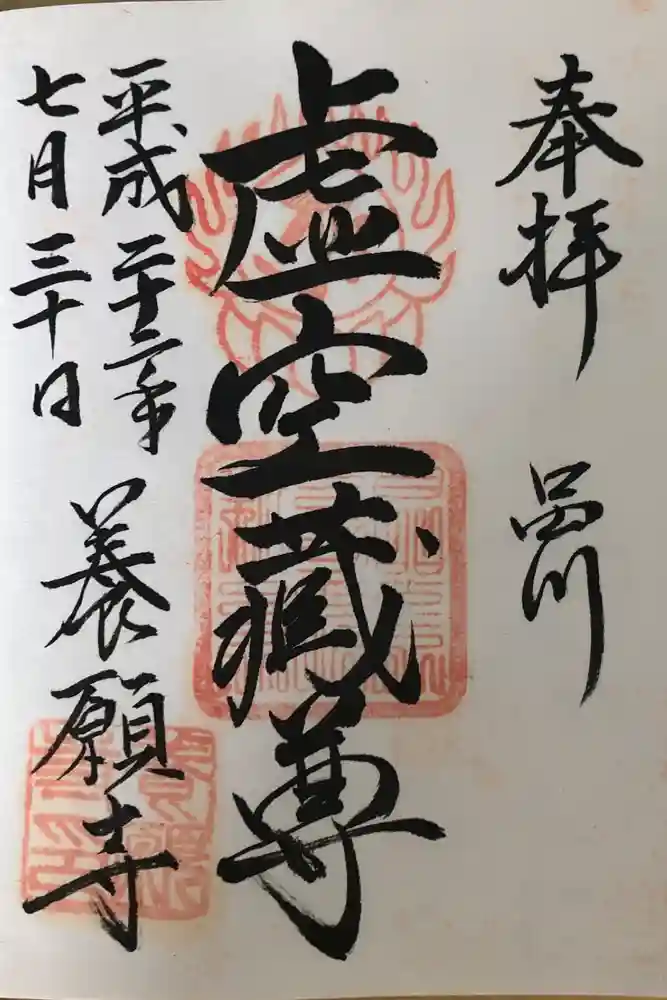 奉拝 品川
虚空藏尊
平成二十二年
七月三十日
養願寺